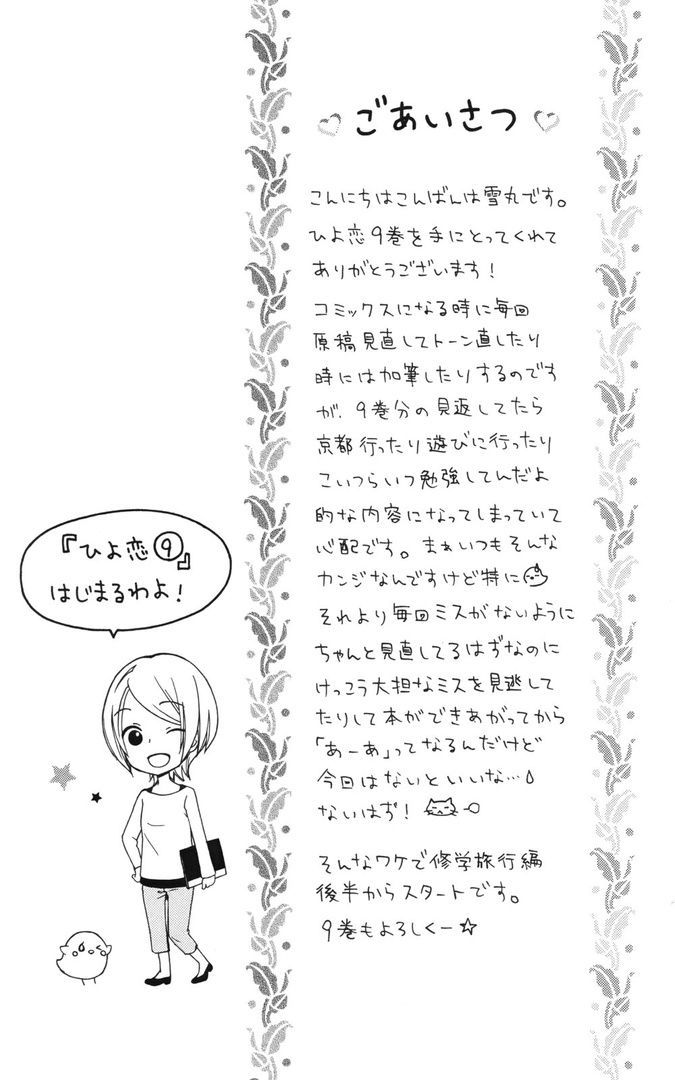 ごあいさつ
こんにちはこんばんは雪丸です。
ひよ恋9巻を手にとってくれて
ありがとうございます！
コミックスになる時に毎回
原稿見直してトーン直したり
時には加筆したりするのです
が、9巻分の見返してたら
京都行ったり遊びに行ったり
こいつらいつ勉強してんだよ
的な内容になってしまっていて
心配です。まぁいつもそんな
カンジなんですけど特に
それより毎回ミスがないように
ちゃんと見直してるはずなのに
けっこう大担なミスを見逃して
たりして本ができあがってから
「あーあ」ってなるんだけど
今回はないといいな…
ないはず！
そんなワケで修学旅行編
後半からスタートです。
9巻もよろしくー☆
『ひよ恋⑨』
はじまるわよ！